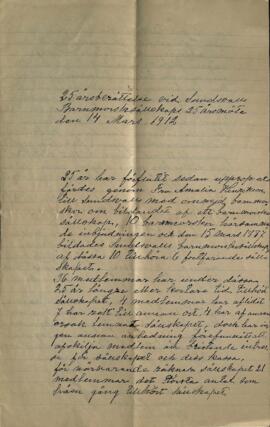 25 årsberättelse vid Sundsvalls
Barnmorskesällskaps 25 årsmöte
den 14 Mars 1912
25 år har förflutit sedan upprop ut-
färdes genom Fru Amalia
till Sundsvalls med omnejd barnmor-
skor om bildandet af ett barnmorske-
sällskap, 10 barnmorskor hörsamma
de inbjudningen och den 15 mars 1887
bildades Sundsvalls barnmorskesällskap
af dessa 10 tillhöra 6 fortfarande säll-
skapet.
36 medlemmar har under dessa
25 år längre eller kortare tid tillhört
sällskapet, 4 medlemmar har aflidit
7 har rest till annan ort, 4 har af annan
orsak lemnat sällskapet, doch har in-
gen annan anledning förefunnits att
medlem än bristande intres-
se för sällskapet och dess kassa,
för närvarande räknar sällskapet 21
medlemmar det största antal som
någon gång tillhört sällskapet.